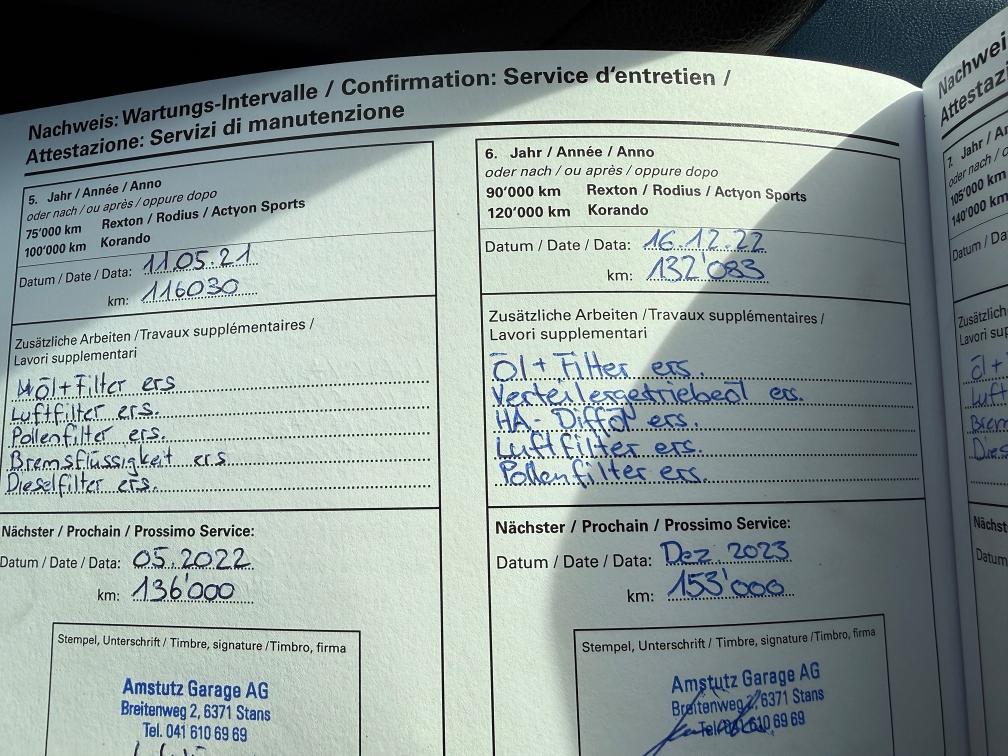 Nachweis: Wartungs-Intervalle / Confirmation: Service d'entretien /
Attestazione: Servizi di manutenzione
5. Jahr / Année / Anno
oder nach / ou après / oppure dopo
75'000 km Rexton / Rodius / Actyon Sports
100'000 km Korando
Datum / Date / Data: 11.05.21
km: 116030
Zusätzliche Arbeiten / Travaux supplémentaires /
Lavori supplementari
Öl + Filter ers
Luftfilter ers.
Pollenfilter ers.
Bremsflüssigkeit ers
Dieselfilter ers.
Nächster / Prochain / Prossimo Service:
Datum / Date / Data: 05.2022
km: 136'000
Stempel, Unterschrift / Timbre, signature / Timbro, firma
Amstutz Garage AG
Breitenweg 2, 6371 Stans
Tel. 041 610 69 69
6. Jahr / Année / Anno
oder nach / ou après / oppure dopo
90'000 km Rexton / Rodius / Actyon Sports
120'000 km Korando
Datum / Date / Data: 16.12.22
km: 132'083
Zusätzliche Arbeiten / Travaux supplémentaires /
Lavori supplementari
Öl + Filter ers.
Verteilergetriebeöl ers.
HA-Difföl ers.
Luftfilter ers.
Pollenfilter ers.
Nächster / Prochain / Prossimo Service:
Datum / Date / Data: Dez 2023
km: 153'000
Stempel, Unterschrift / Timbre, signature / Timbro, firma
Amstutz Garage AG
Breitenweg 2, 6371 Stans
Tel. 041 610 69 69
Nachwei
Attestazi
7. Jahr / A
oder nach / o
105'000 km
140'000 km
Datum / D
Zusätzlich
Lavori sup
Öl +
Luft
Brem
Dies
Nächst
Datum